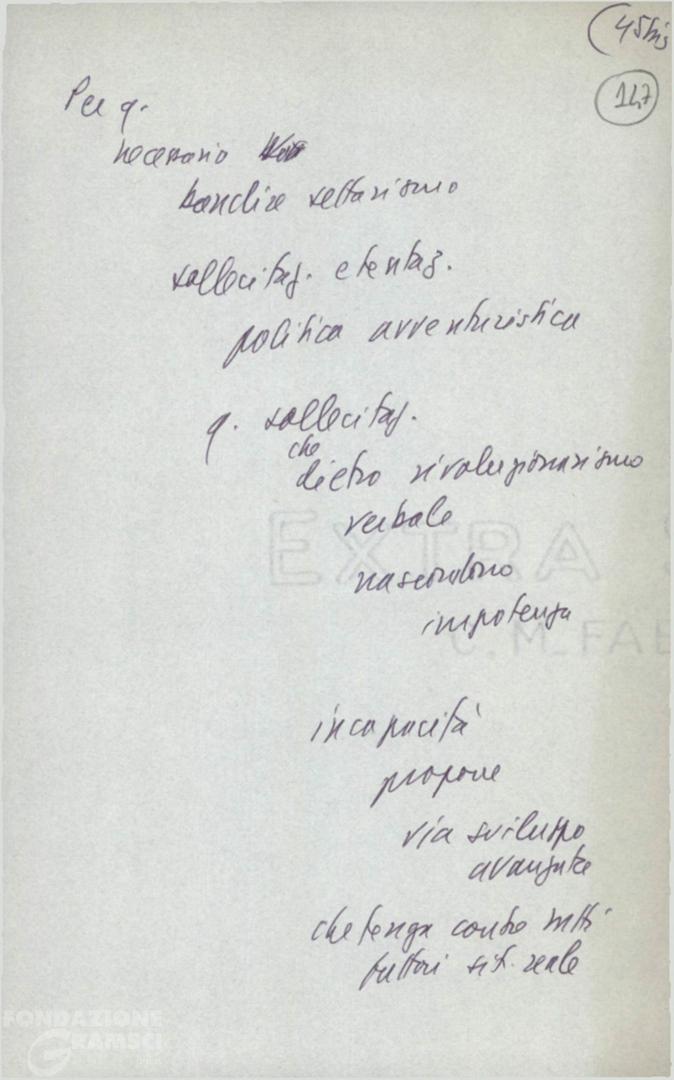 (45bis
147
Per q.
necessario
bandire settarismo
sollecitaz. e tentaz.
politica avventuristica
q. sollecitaz.
che
dietro rivoluzionarismo
verbale
nascondono
impotenza
incapacità
proporre
via sviluppo
avanzata
che tenga conto tutti
fattori sit. reale
EXTRA S
C.M.FAB
FONDAZIONE
GRAMSCI